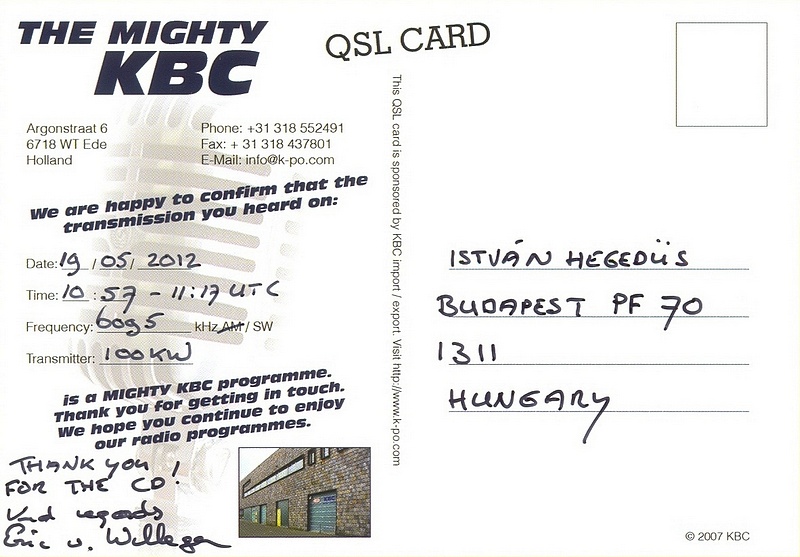 THE MIGHTY
KBC
QSL CARD
Argonstraat 6
6718 WT Ede
Holland
Phone: +31 318 552491
Fax: + 31 318 437801
E-Mail: info@k-po.com
We are happy to confirm that the
transmission you heard on:
Date: 19 / 05 / 2012
Time: 10 : 57 - 11:17 UTC
Frequency: 6095 kHz AM / SW
Transmitter: 100KW
is a MIGHTY KBC programme.
Thank you for getting in touch.
We hope you continue to enjoy
our radio programmes.
THANK YOU
FOR THE CD!
Kind regards
Eric v.
This QSL card is sponsored by KBC import / export. Visit http://www.k-po.com
ISTVÁN HEGEDÜS
BUDAPEST PF 70
1311
HUNGARY
© 2007 KBC